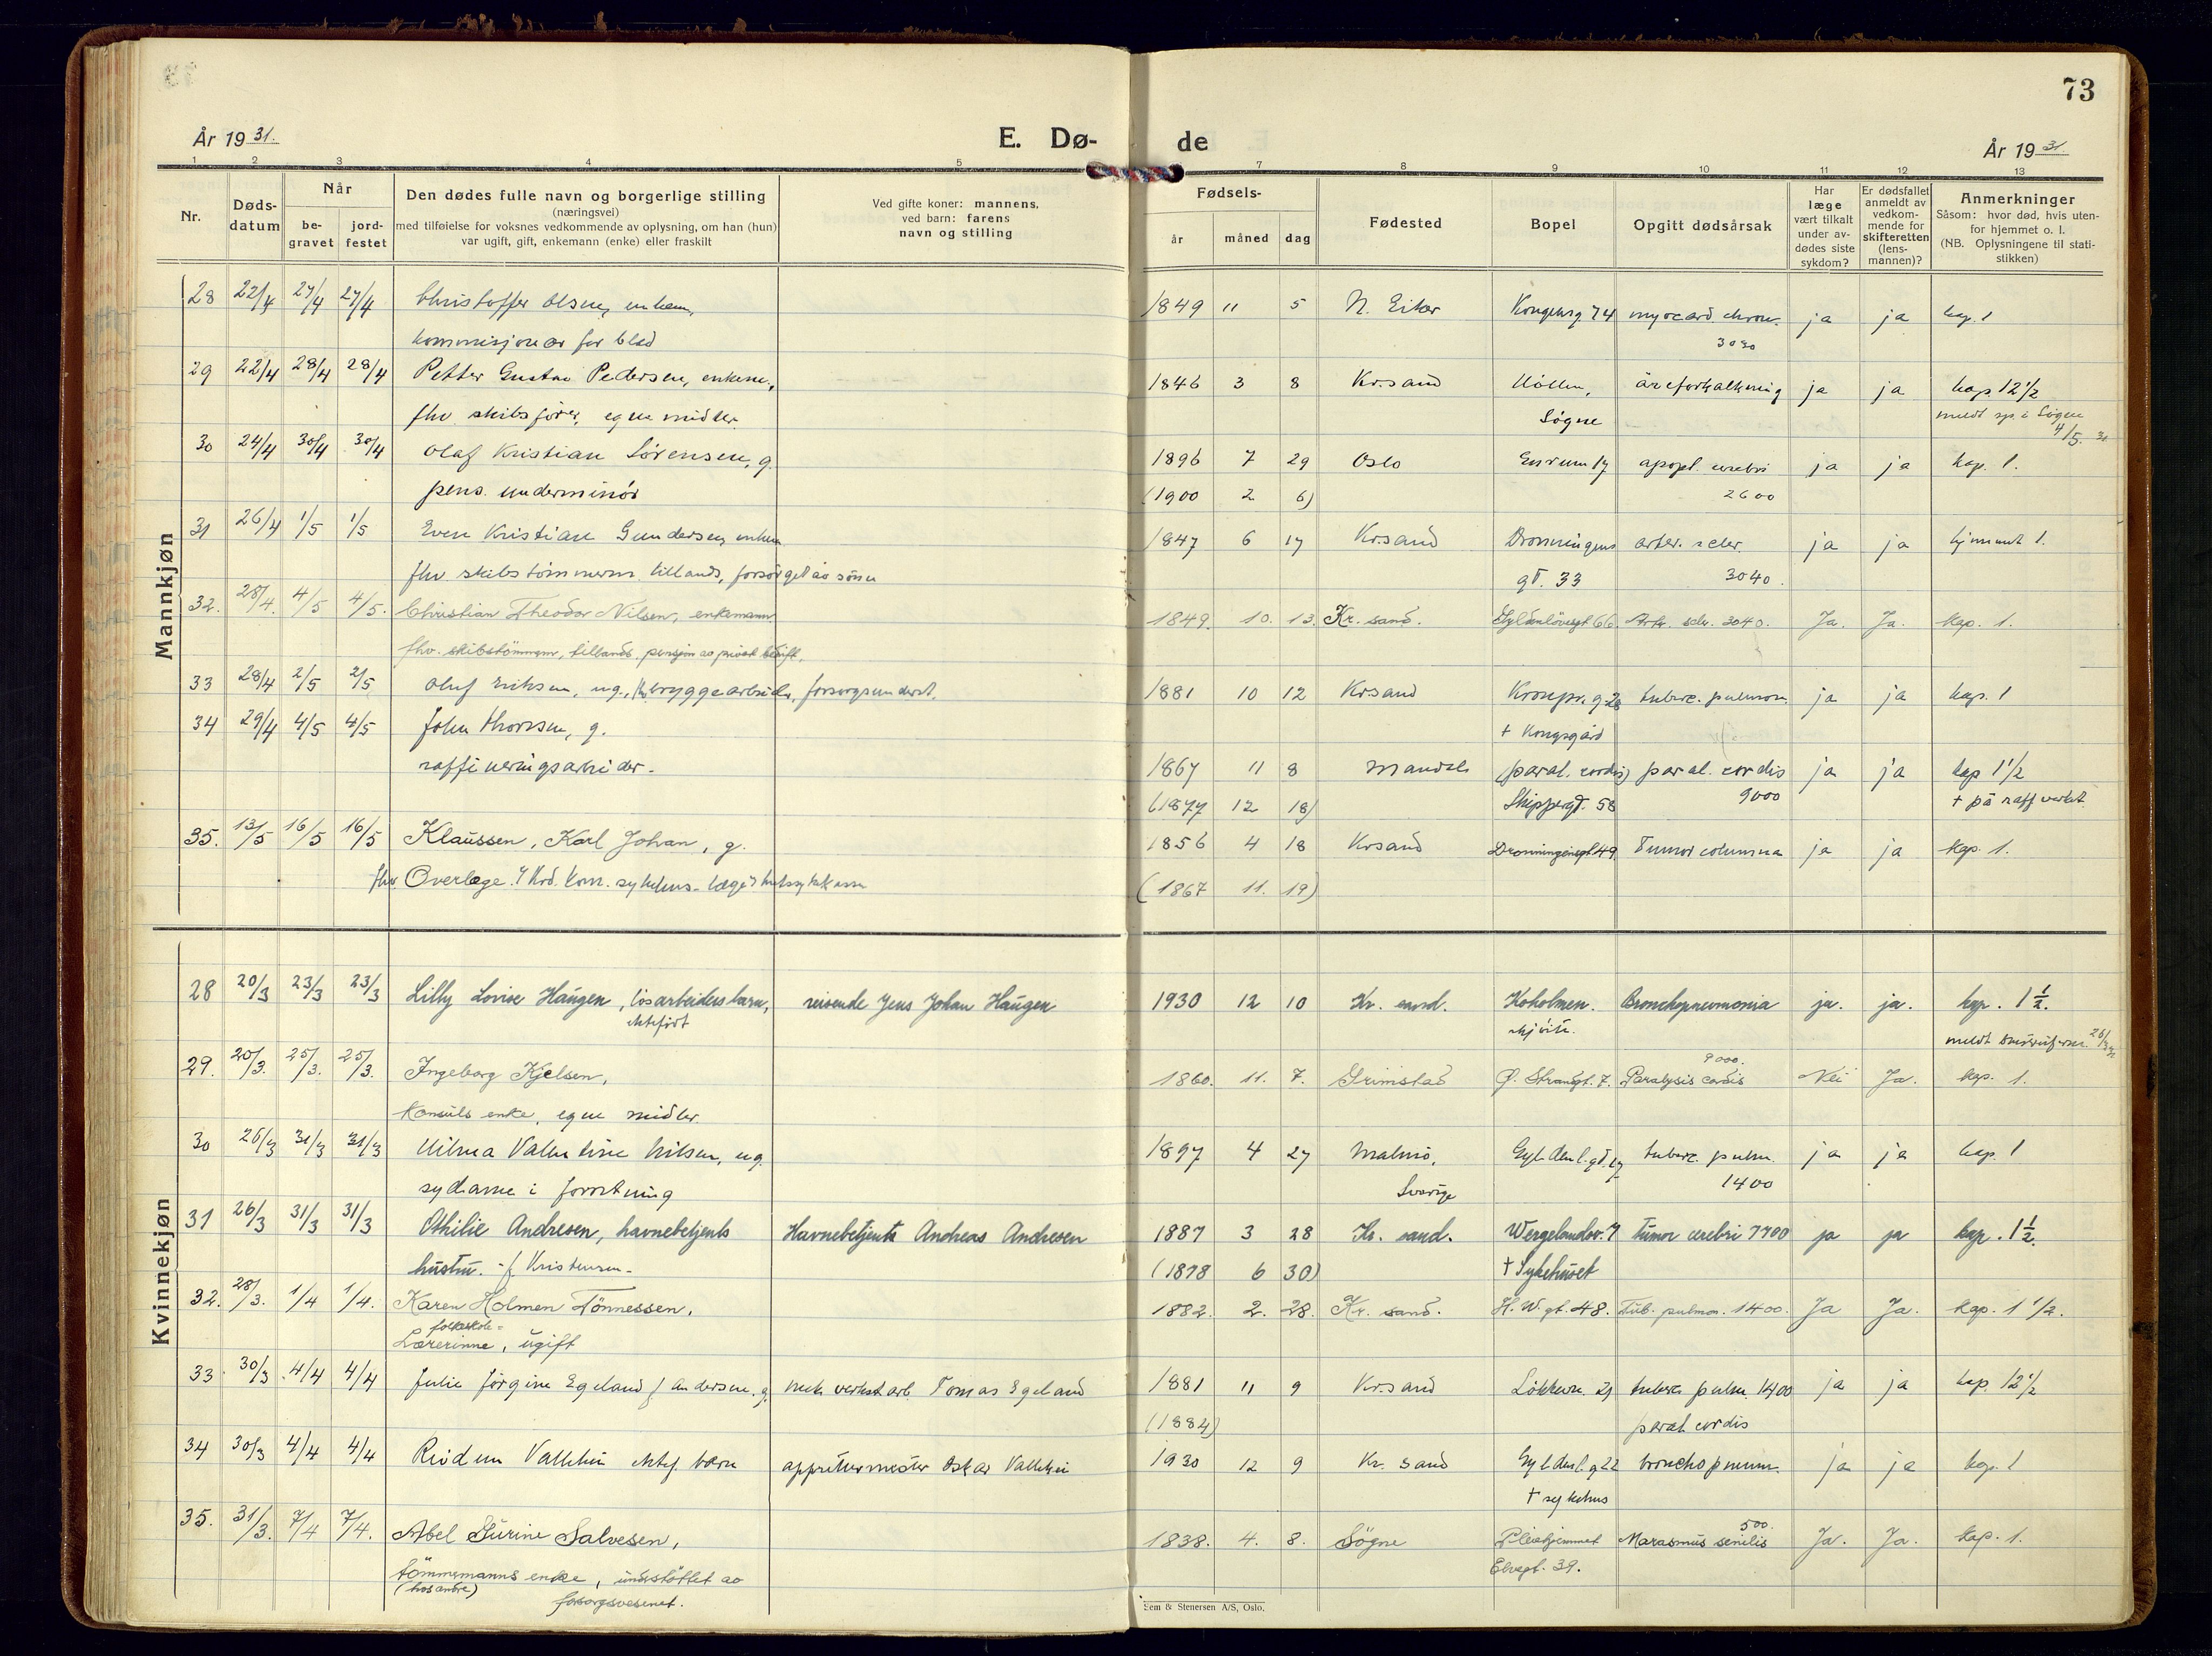 73
År 1931.
E. Dø-
de
År 1931.
1 2 3 4 5 7 8 9 10 11 12 13
Nr.
Døds-
datum
Når
be-
gravet
jord-
festet
Den dødes fulle navn og borgerlige stilling
(næringsvei)
med tilføielse for voksnes vedkommende av oplysning, om han (hun)
var ugift, gift, enkemann (enke) eller fraskilt
Ved gifte koner: mannens,
ved barn: farens
navn og stilling
Fødsels-
år måned dag
Fødested
Bopel
Opgitt dødsårsak
Har
læge
vært tilkalt
under av-
dødes siste
sykdom?
Er dødsfallet
anmeldt av
vedkom-
mende for
skifteretten
(lens-
mannen)?
Anmerkninger
Såsom: hvor død, hvis uten-
for hjemmet o. l.
(NB. Oplysningene til stati-
stikken)
Mannkjøn
28 22/4 27/4 27/4 Christoffer Olsen, enkem, 1849 11 5 N. Eiker Kongensg 74 myocard. chron. ja ja kap. 1
kommisjonær for blad 3030
29 22/4 28/4 28/4 Petter Gustav Pedersen, enkem., 1846 3 8 Kr.sand Höllen, åreforkalkning ja ja kap 12 1/2
fhv skibsfører, egne midler Søgne meldt sp. i Søgne
4/5. 31
30 24/4 30/4 30/4 Olaf Kristian Sørensen, g. 1896 7 29 Oslo apopl. cerebri ja ja kap. 1.
pens. underminør (1900 2 6) 2600
31 26/4 1/5 1/5 Even Kristian Gundersen, enkem 1847 6 17 Kr.sand Dronningens arter. scler. ja ja hjemmet 1.
fhv skibstømmerm. tillands, forsörget av sönn gt. 33 3040.
32. 28/4. 4/5 4/5. Christian Theodor Nilsen, enkemann 1849. 10. 13. Kr. sand. Gyldenlövesgt 66 Artr. scler. 3040. Ja. Ja. kap. 1.
fhv. skibstömmerm, tillands, pensjon av privat bedrift.
33 28/4 2/5 2/5 Oluf Eriksen, ug., bryggearbeider, forsorgsunderst. 1881 10 12 Kr.sand Kronpr. g 28 tuberc. pulmon. ja ja kap. 1
+ Kongsgård
34 29/4 4/5 4/5 John Thorsen, g.
raffineringsarbeider. 1867 11 8 Mandal (paral. cordis) paral. cordis ja ja kap 1 1/2
(1877 12 18) Skippergt. 58 9000 + på raffverket.
35. 13/5 16/5 16/5 Klaussen, Karl Johan, g. 1856 4 18 Kr.sand Dronningensgt 49 Tumor columna ja ja kap. 1.
fhv Overlæge. v/ Krd. kom. sykehus - læge v/ (1867 11. 19)
Kvinnekjøn
28 20/3 23/3 23/3 Lilly Lovise Haugen, løsarbeiders barn, reisende Jens Johan Haugen 1930 12 10 Kr. sand. Koholmen. Bronchopneumonia ja. ja. kap. 1 1/2.
ektefødt
29. 20/3. 25/3. 25/3. Ingeborg Kjelsen, 1860. 11. 7. Grimstad Ø. Strandgt. 7. 9000. Paralysis cordis Nei Ja. kap. 1.
Konsuls enke, egne midler
30 26/3 31/3 31/3 Vilma Valentine Nilsen, ug. 1897 4 27 Malmö, Gyldenl. gt. 17 tuberc. pulm. ja ja kap. 1
sydame i forretning Sverige 1400
31 26/3 31/3 31/3 Othilie Andresen, havnebetjents Havnebetjent Andreas Andresen 1887 3 28 Kr. sand. Wergelandsv. 7 Tumor cerebri 7700 ja ja kap. 1 1/2.
hustru. - f Kristensen - (1878 6 30) + Sykehuset
32. 28/3. 1/4 1/4. Karen Holmen Tönnessen, 1882. 2. 28. Kr. sand. H. W. gt. 48. Tub. pulmon. 1400. Ja Ja. kap. 1 1/2.
folkeskole=
Lærerinne, ugift
33 30/3 4/4 4/4 Julie Jörgine Egeland f Andersen. g, mek verkst arb Tomas Egeland 1881 11 9 Kr.sand Lökkevn. 21 tuberc pulm. 1400 ja ja kap. 12 1/2
(1884) paral cordis
34 30/3 4/4 4/4 Reidun Vallhei ektef. barn appreturmester Oskar Vallhei 1930 12 9 Kr. sand Gyldenl. g 22 bronchopneum. ja ja kap. 1
+ sykehus
35. 31/3. 7/4 7/4. Abel Surine Salvesen, 1838. 4. 8. Søgne Pleiehjemmet 500. Marasmus senilis Ja. Ja. kap. 1.
tömmermanns enke, understöttet av Elvegt. 39.
(hos andre) forsorgsvesenet.
Sem & Stenersen A/S, Oslo.